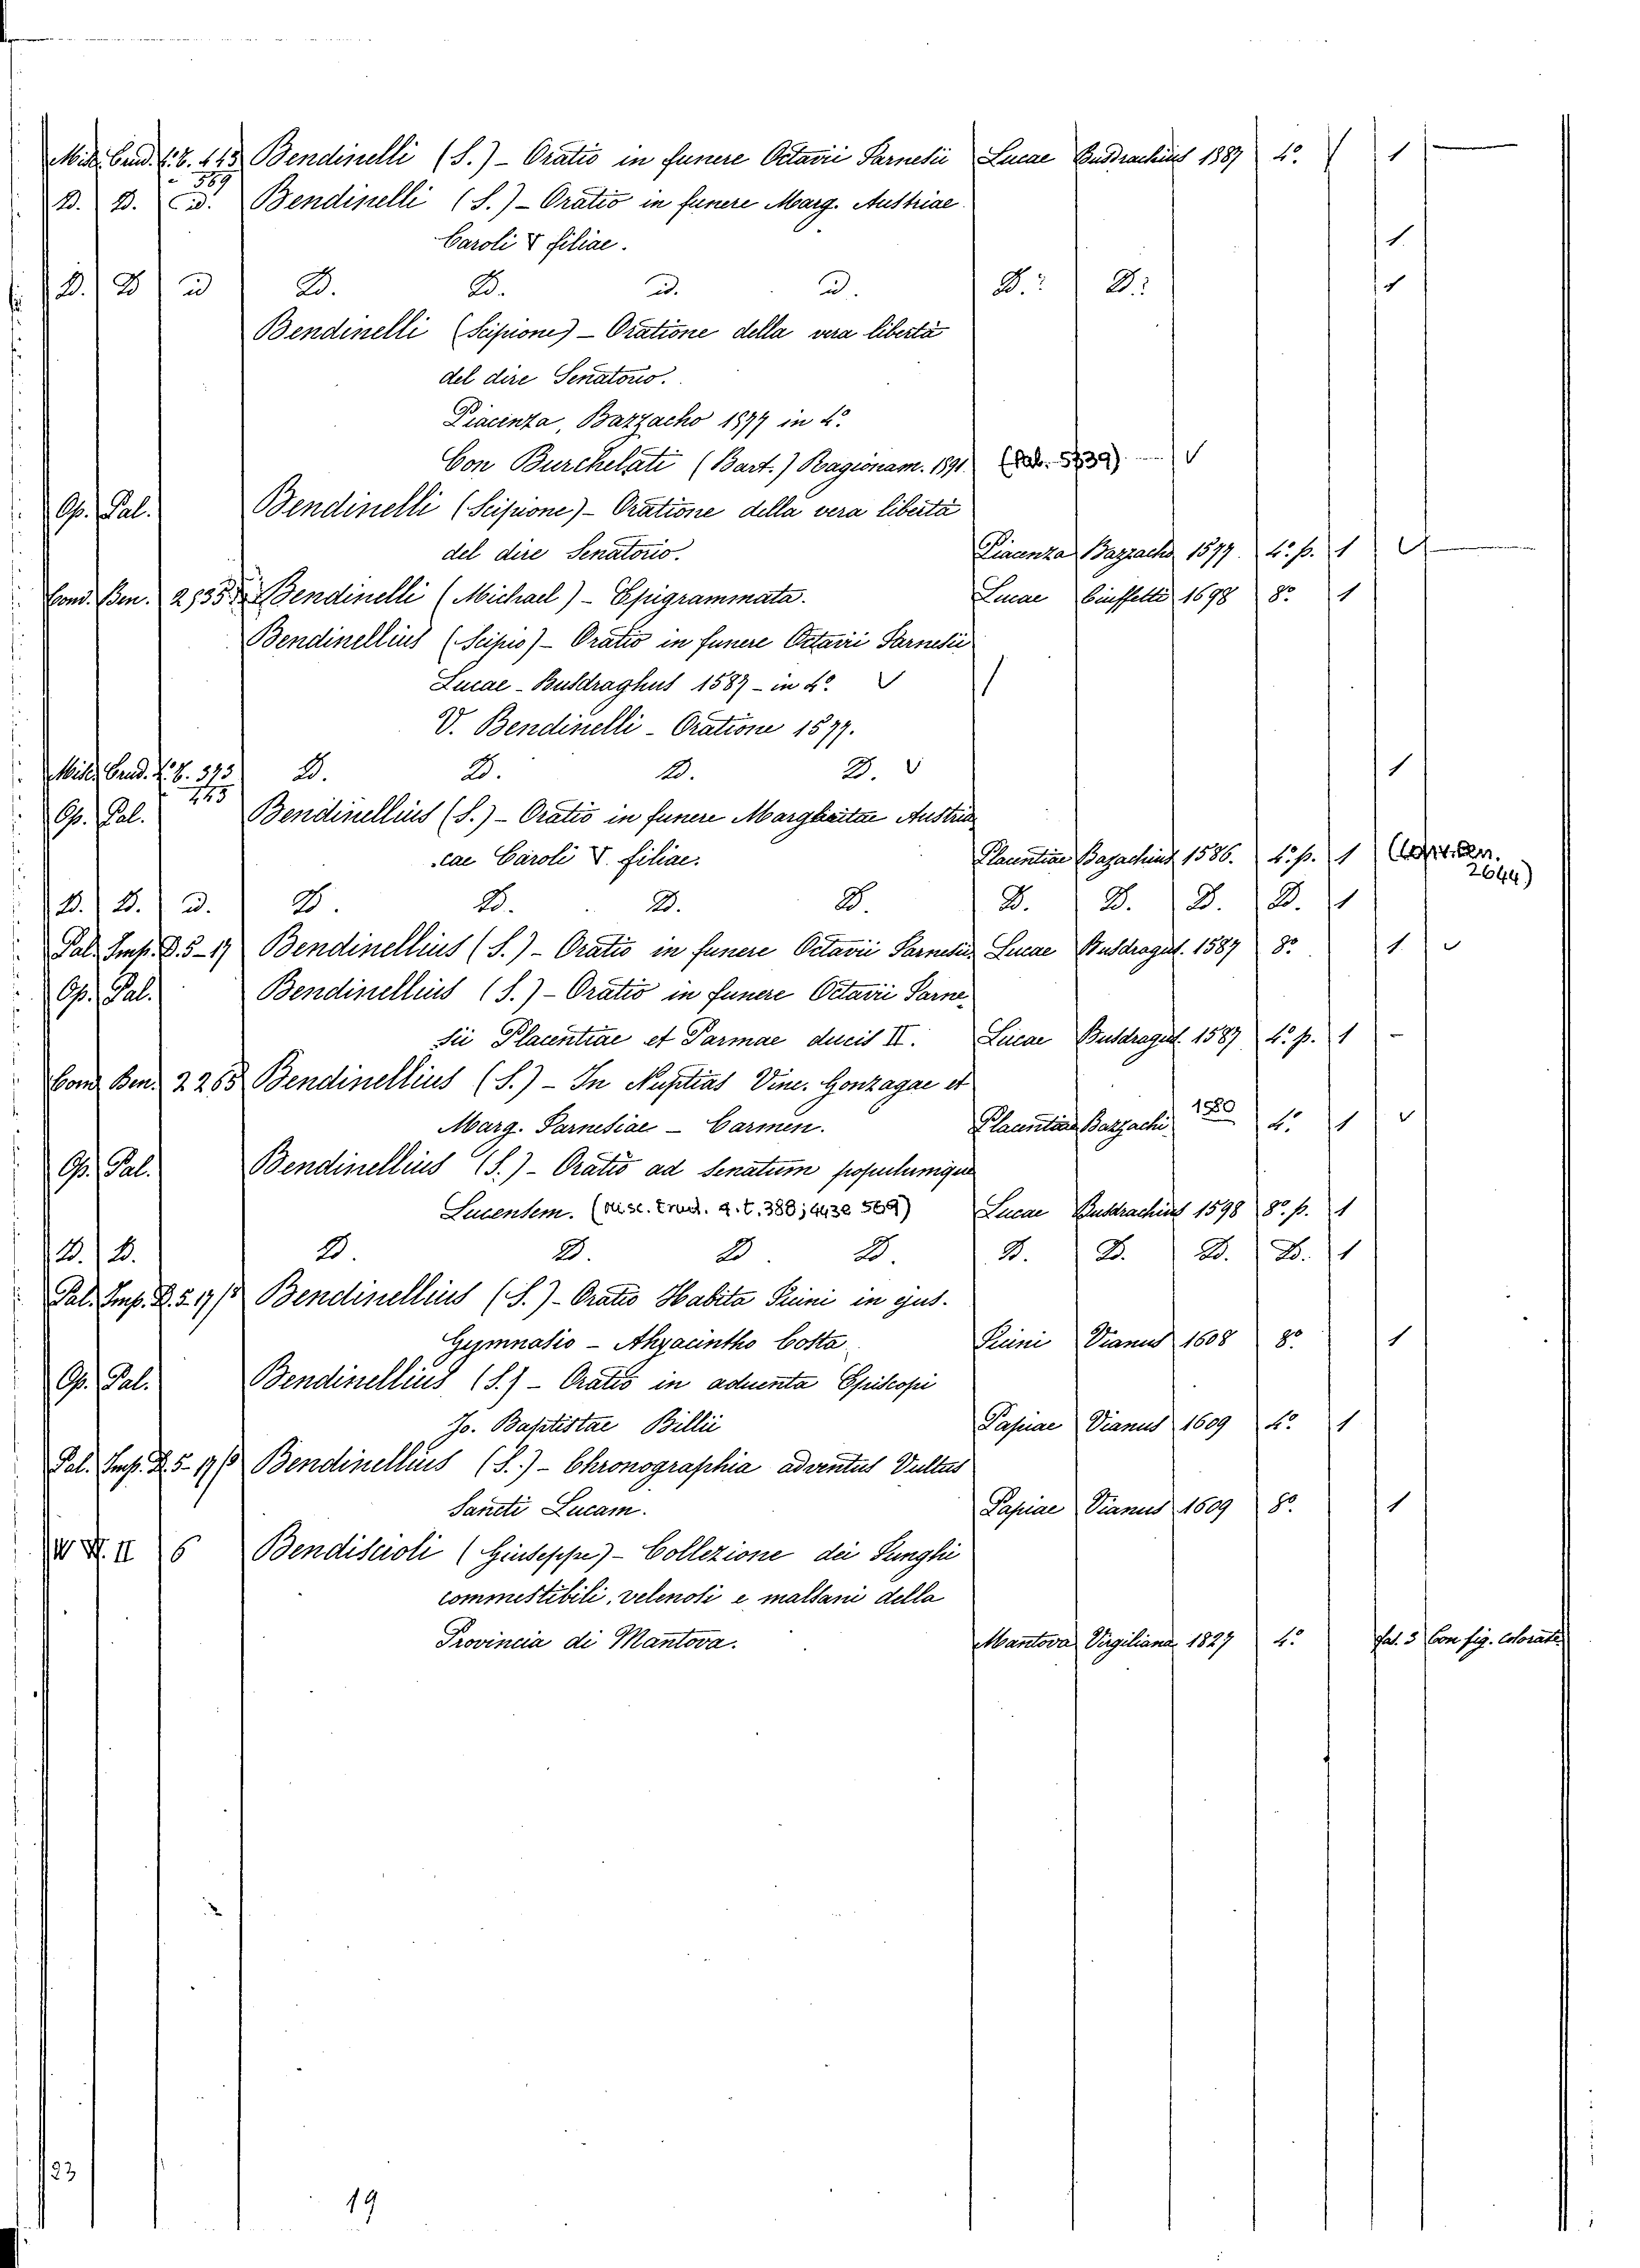 Misc. Erud. 4.° t. 443 Bendinelli (S.) - Oratio in funere Octavii Farnesii Lucae Busdrachius 1587 4.° 1
569
D. D. D. Bendinelli (S.) - Oratio in funere Marg. Austriae
Caroli V filiae. 1
D. D D D. D. D. D. D. D. 1
Bendinelli (Scipione) - Oratione della vera libertà
del dire Senatorio.
Piacenza, Bazzacho 1577 in 4.°
Con Burchelati (Bart.) Ragionam. 1591. (Pal. 5739)
Op. Pal. Bendinelli (Scipione) - Oratione della vera libertà
del dire Senatorio. Piacenza Bazzacho 1577. 4.° p. 1
Cond. Ben. 2535 Bendinelli (Michael) - Epigrammata. Lucae Ciuffetti 1698 8.° 1
Bendinellius (Scipio) - Oratio in funere Octavii Farnesii
Lucae - Busdraghus 1587 - in 4.°
V. Bendinelli - Oratione 1577.
Misc. Erud. 4.° t. 375 D. D. D. D. 1
443
Op. Pal. Bendinellius (S.) - Oratio in funere Margharitae Austria
cae Caroli V. filiae. Placentiae Bazachius 1586. 4.° p. 1 (Cont. Ben.
2644)
D. D. D. D. D. D. D. D. D. D. D. 1
Pal. Imp. D. 5-17 Bendinellius (S.) - Oratio in funere Octavii Farnesii Lucae Busdragus. 1587 8.° 1
Op. Pal. Bendinellius (S.) - Oratio in funere Octavii Farne
sii Placentiae et Parmae ducis II. Lucae Busdragus. 1587 4.° p. 1 -
Cond. Ben. 2265 Bendinellius (S.) - In Nuptias Vinc. Gonzagae et
Marg. Farnesiae - Carmen. Placentiae Bazzachi 1580 4.° 1
Op. Pal. Bendinellius (S.) - Oratio ad Senatum populumque
Lucensem. (Misc. Erud. 4. t. 388; 443 e 569) Lucae Busdrachius 1598 8.° p. 1
D. D. D. D. D. D. D. D. D. D. 1
Pal. Imp. D. 5. 17/ Bendinellius (S.) - Oratio Habita Ticini in ejus.
Gymnasio - Ahyacintho Costa Ticini Vianus 1608 8.° 1
Op. Pal. Bendinellius (S.) - Oratio in aduenta Episcopi
Jo. Baptistae Billii Papiae Vianus 1609 4.° 1
Pal. Imp. D. 5- 17/ Bendinellius (S.) - Chronographia adventus Vultus
Sancti Lucam. Papiae Vianus 1609 8.° 1
II 6 Bendiscioli (Giuseppe) - Collezione dei Funghi
commestibili, velenosi e malsani della
Provincia di Mantova. Mantova Virgiliana 1827 4.° fas. 3 Con fig. colorate
23
19